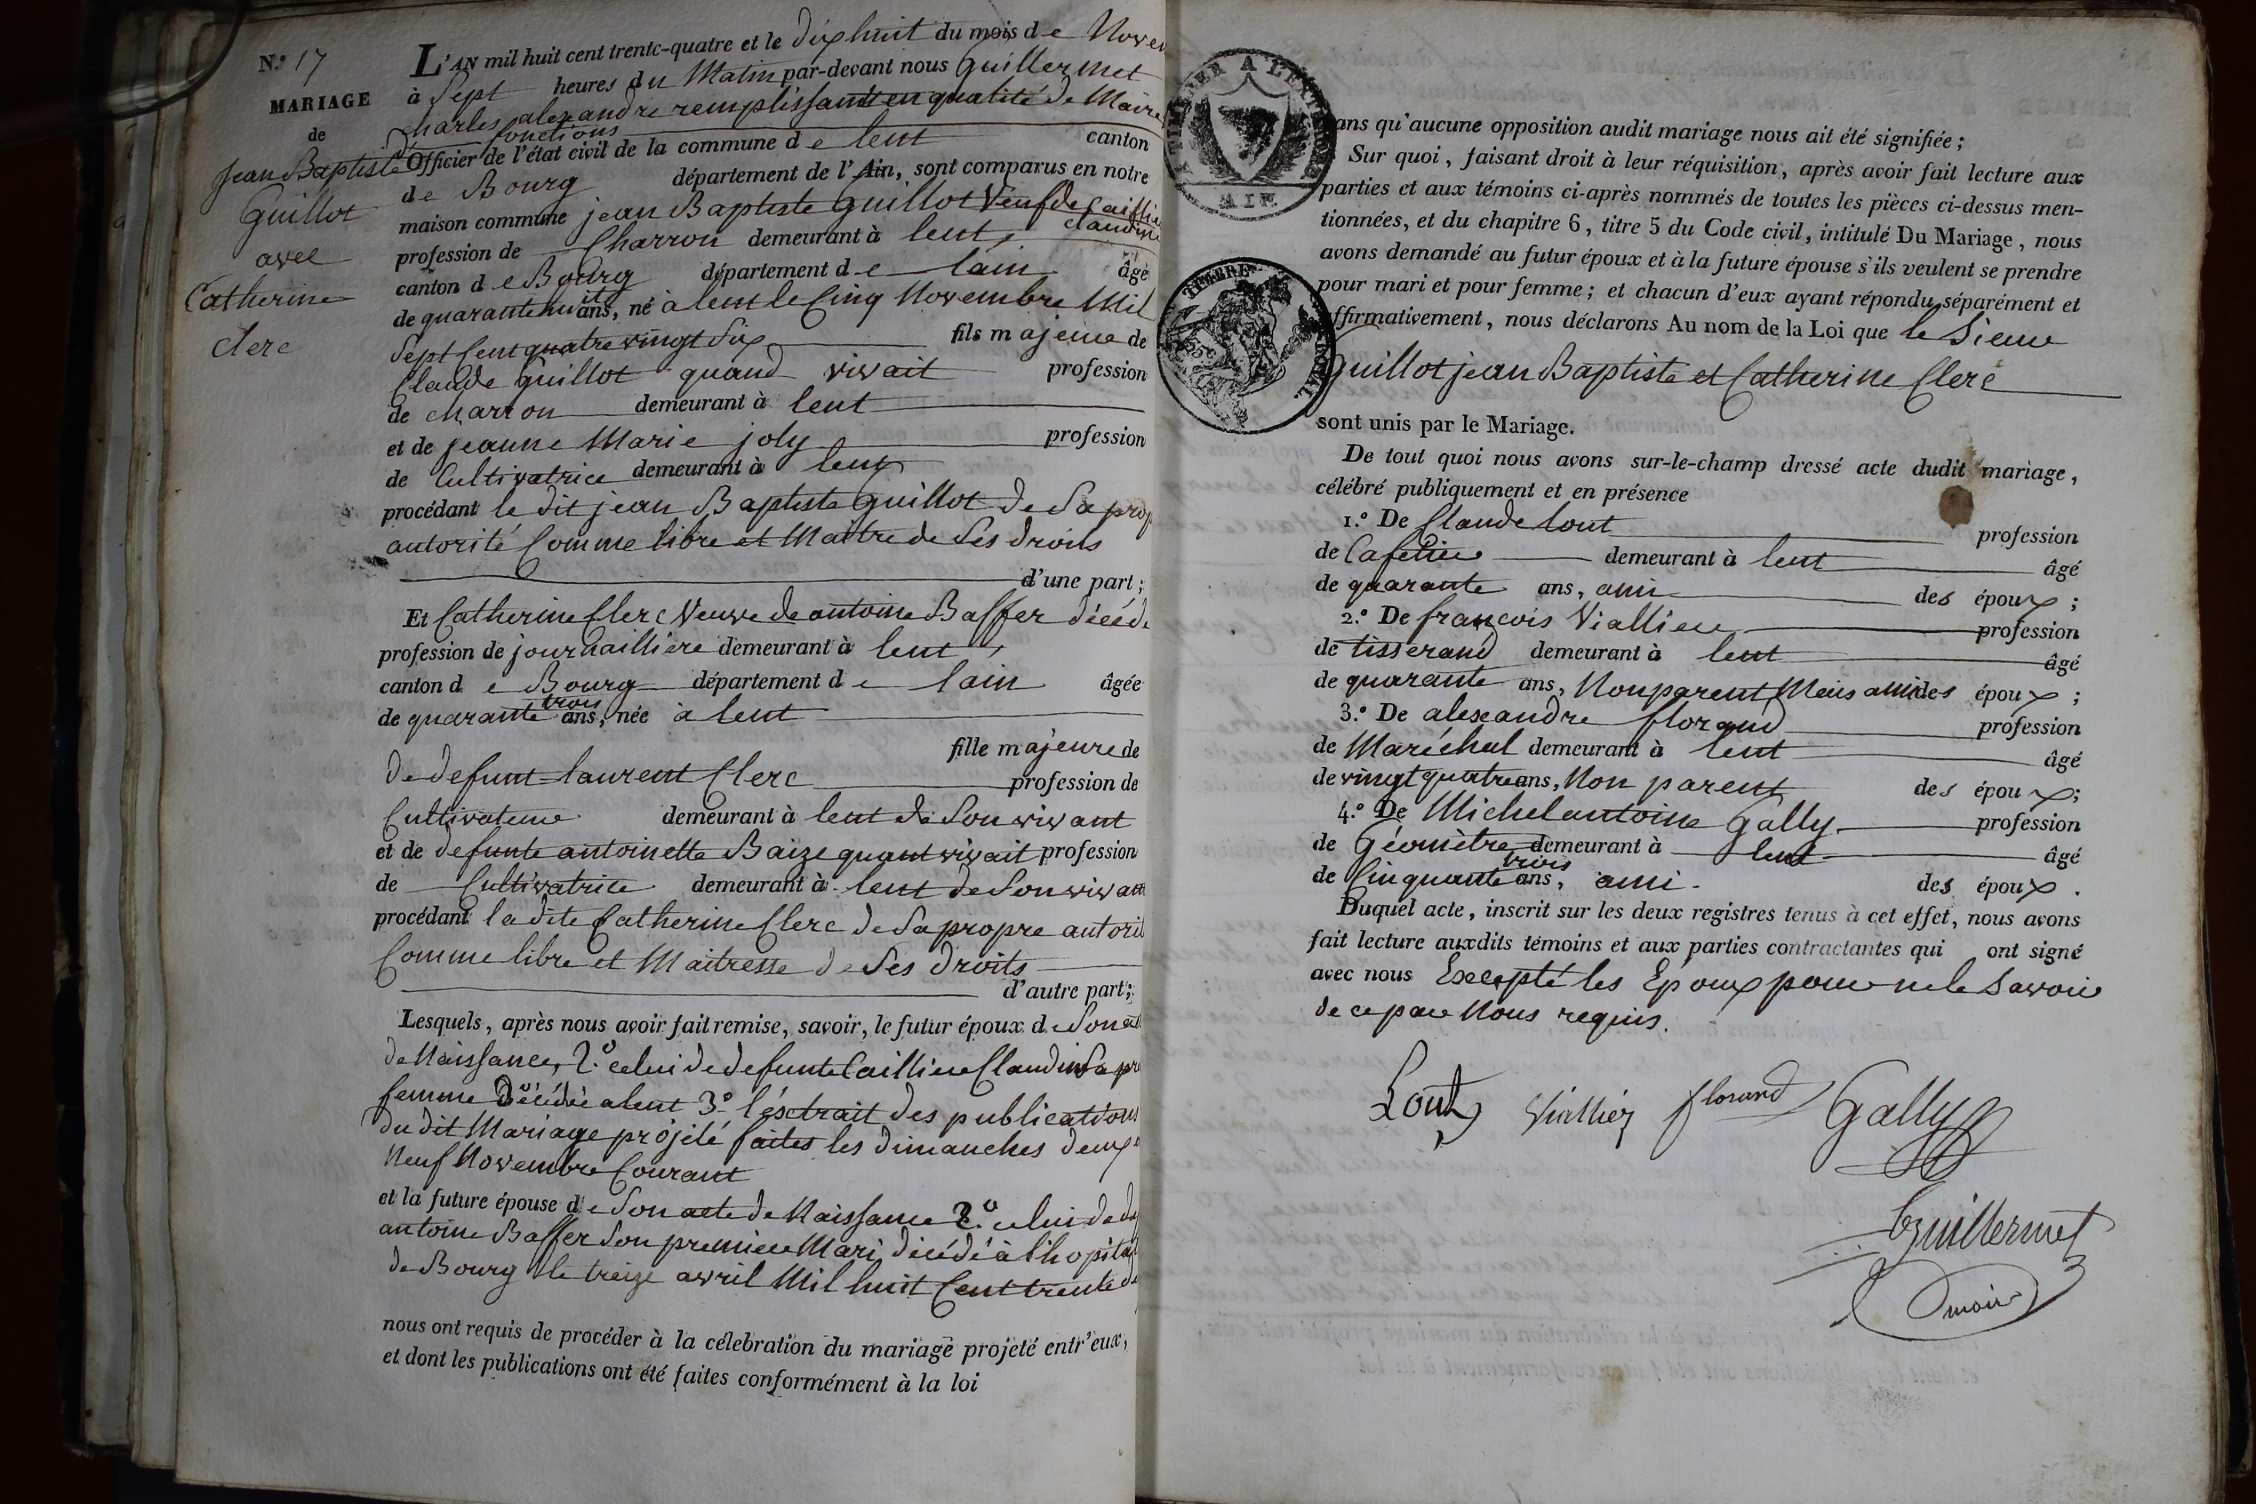 N.º 17
MARIAGE
de
Jean Baptiste
Guillot
avec
Catherine
Clerc
L'AN mil huit cent trente-quatre et le dix huit du mois de Nove
à Sept heures du Matin par-devant nous Guillermet
Charles alexandre remplissant en qualité de Maire
fonctions
Officier de l'état civil de la commune de lent canton
de Bourg département de l'Ain, sont comparus en notre
maison commune jean Baptiste Guillot Veuf de Caillie
Claudine
profession de Charron demeurant à lent,
canton de Bourg département de lain âgé
de quarante huit ans, né à lent le Cinq Novembre Mil
Sept Cent quatre vingt Six fils majeur de
Claude Guillot quand vivait profession
de charron demeurant à lent
et de jeanne Marie joly profession
de Cultivatrice demeurant à lent
procédant le dit jean Baptiste Guillot de Sa prop
autorité Comme libre et Maitre de Ses droits
d'une part;
Et Catherine Clerc Veuve de antoine Baffer décédé
profession de journaillière demeurant à lent,
canton de Bourg département de lain âgée
trois
de quarante ans, née à lent
fille majeure de
de defunt laurent Clerc profession de
Cultivateur demeurant à lent de Son vivant
et de defunte antoinette Baize quant vivait profession
de Cultivatrice demeurant à lent de Son vivant
procédant la dite Catherine Clerc de Sa propre autorit
Comme libre et Maitresse de Ses droits
d'autre part;
Lesquels, après nous avoir fait remise, savoir, le futur époux de Son
de Naissance, 2.º celui de defunte Caillier Claudine Sa pr
femme Décédée a lent 3º l'éxtrait des publications
du dit Mariage projeté faites les dimanches deux
Neuf Novembre Courant
et la future épouse de Son acte de Naissance 2.º celui de
antoine Baffer Son premier Mari, décédé à l'hopital
de Bourg le treize avril Mil huit Cent trente
nous ont requis de procéder à la célebration du mariage projeté entr'eux,
et dont les publications ont été faites conformément à la loi
TIMBRE A L'EXTRAORD
AIN
TIMBRE ROYAL
ans qu'aucune opposition audit mariage nous ait été signifiée;
Sur quoi, faisant droit à leur réquisition, après avoir fait lecture aux
parties et aux témoins ci-après nommés de toutes les pièces ci-dessus men-
tionnées, et du chapitre 6, titre 5 du Code civil, intitulé Du Mariage, nous
avons demandé au futur époux et à la future épouse s'ils veulent se prendre
pour mari et pour femme; et chacun d'eux ayant répondu séparément et
ffirmativement, nous déclarons Au nom de la Loi que le Sieur
Guillot jean Baptiste et Catherine Clerc
sont unis par le Mariage.
De tout quoi nous avons sur-le-champ dressé acte dudit mariage,
célébré publiquement et en présence
1.º De Claude Lout profession
de Cafetier demeurant à lent âgé
de quarante ans, ami des époux;
2.º De françois Viallier profession
de tisserand demeurant à lent âgé
de quarante ans, Non parent Mais ami des époux;
3.º De alexandre florand profession
de Maréchal demeurant à lent âgé
de vingt quatre ans, Non parent des époux;
4.º De Michel antoine Gally profession
de Géomètre demeurant à lent âgé
trois
de Cinquante ans, ami des époux.
Duquel acte, inscrit sur les deux registres tenus à cet effet, nous avons
fait lecture auxdits témoins et aux parties contractantes qui ont signé
avec nous Excepté les Epoux pour ne le Savoir
de ce par Nous requis.
Lout Viallier florand Gally
Guillermet
maire